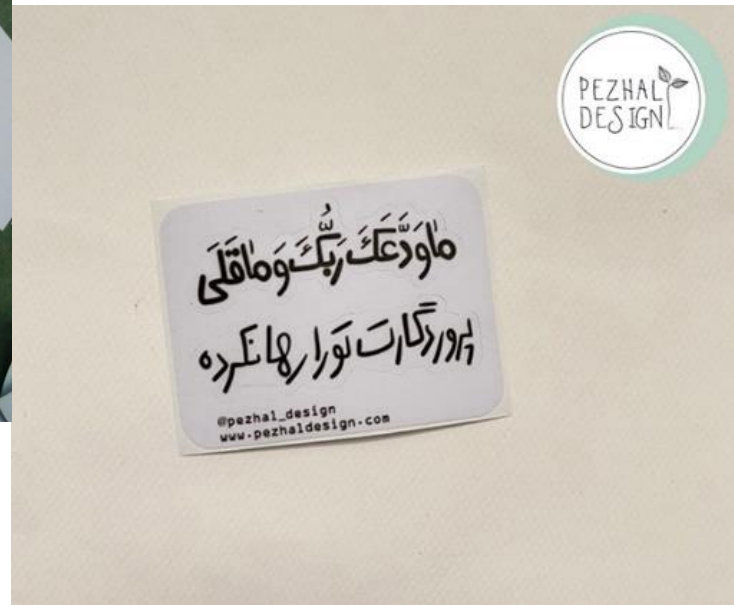 PEZHAL
DESIGN
مٰا وَدَّعَكَ رَبُّكَ وَ مٰا قَلَی
پروردگارت تو را رها نکرده
@pezhal_design
www.pezhaldesign.com